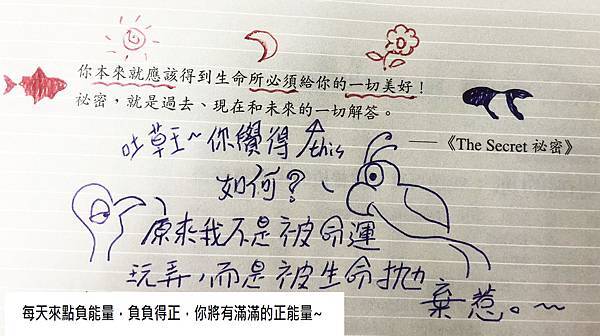 你本來就應該得到生命所必須給你的一切美好！
祕密，就是過去、現在和未來的一切解答。
——《The Secret 祕密》
吐草王~你覺得↑this
如何？
原來我不是被命運
玩弄，而是被生命拋
棄惹。~
每天來點負能量，負負得正，你將有滿滿的正能量~